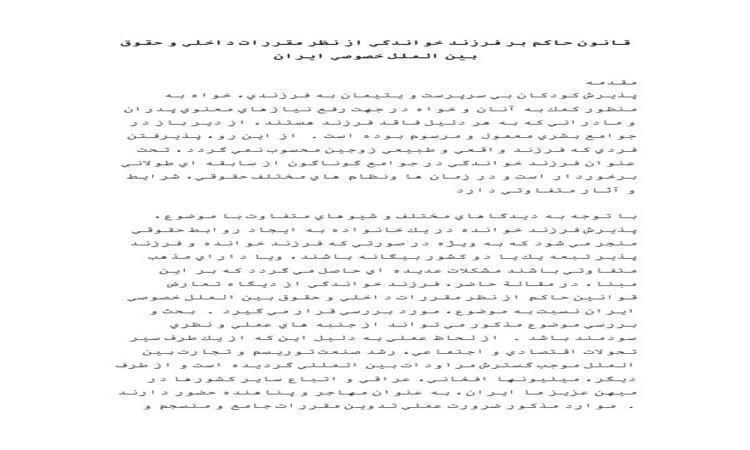 قانون حاكم بر فرزند خواندگي از نظر مقررات داخلي و حقوق
بين الملل خصوصي ايران
مقدمه
پذيرش كودكان بي سرپرست و يتيمان به فرزندي، خواه به
منظور كمك به آنان و خواه در جهت رفع نيازهاي معنوي پدران
و مادراني كه به هر دليل فاقد فرزند هستند، از ديرباز در
جوامع بشري معمول و مرسوم بوده است . از اين رو، پذيرفتن
فردي كه فرزند واقعي و طبيعي زوجين محسوب نمي گردد ، تحت
عنوان فرزند خواندگي در جوامع گوناگون از سابقه اي طولاني
برخوردار است و در زمان ها ونظام هاي مختلف حقوقي، شرايط
و آثار متفاوتي دارد
با توجه به ديدگاهاي مختلف و شيوهاي متفاوت با موضوع،
پذيرش فرزند خوانده در يك خانواده به ايجاد روابط حقوقي
منجر مي شود كه به ويژه در صورتي كه فرزند خوانده و فرزند
پذير تبعه يك يا دو كشور بيگانه باشند، ويا داراي مذهب
متفاوتي باشند مشكلات عديده اي حاصل مي گردد كه بر اين
مبنا، در مقالة حاضر، فرزند خواندگي از ديدگاه تعارض
قوانين حاكم از نظر مقررات داخلي و حقوق بين الملل خصوصي
ايران نسبت به موضوع، مورد بررسي قرار مي گيرد . بحث و
بررسي موضوع مذكور مي تواند از جنبه هاي عملي و نظري
سودمند باشد . از لحاظ عملي به دليل اين كه از يك طرف سير
تحولات اقتصادي و اجتماعي، رشد صنعت توريسم و تجارت بين
الملل موجب گسترش مراودات بين المللي گرديده است و از طرف
ديگر، ميليونها افغاني، عراقي و اتباع ساير كشورها در
ميهن عزيز ما ايران، به عنوان مهاجر و پناهنده حضور دارند
. موارد مذكور ضرورت عملي تدوين مقررات جامع و منسجم و